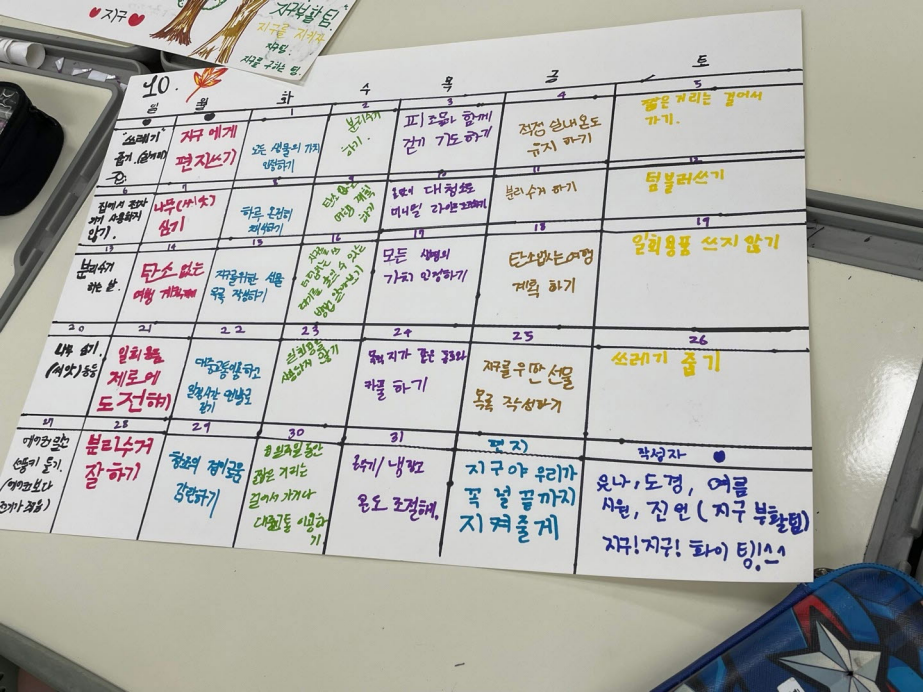 지구
지구부활팀
지구를 지키자
10.
일 월 화 수 목 금 토
"쓰레기"
줍기.
지구에게
편지쓰기
1
모든 생물의 가치
인정하기
2
분리수거
하기.
3
피조물과 함께
걷기 기도하기
4
적정 실내온도
유지 하기
5
짧은 거리는 걸어서
가기.
6
집에서 전자
기기 사용하지
않기.
7
나무(씨앗)
심기
8
하루 온전히
채식하기
9
탄소 없는
여행 계획
하기
10
대청소로
미니멀 라이프
11
분리수거 하기
12
텀블러쓰기
13
분리수거
하는 날.
14
탄소 없는
여행 계획
15
지구를위한 선물
목록 작성하기
16
17
모든 생명의
가치 인정하기
18
탄소없는여행
계획 하기
19
일회용품 쓰지 않기
20
나무 심기.
(씨앗)
21
일회용품
제로에
도전해
22
대중교통이용하고
걷기
23
일회용품
사용하지 않기
24
목적지가 같은 동료와
카풀 하기
25
지구를 위한 선물
목록 작성하기
26
쓰레기 줍기
27
에어컨 말고
선풍기 틀기.
28
분리수거
잘 하기
29
창조의 경이로움
감탄하기
30
일주일 동안
짧은 거리는
걸어서 가거나
대중교통 이용하
기.
31
온도 조절해.
편지
지구야 우리가
꼭 널 끝까지
지켜줄게
작성자
윤나, 도경, 여름
시원, 진언 (지구 부활팀)
지구! 지구! 화이팅!^^